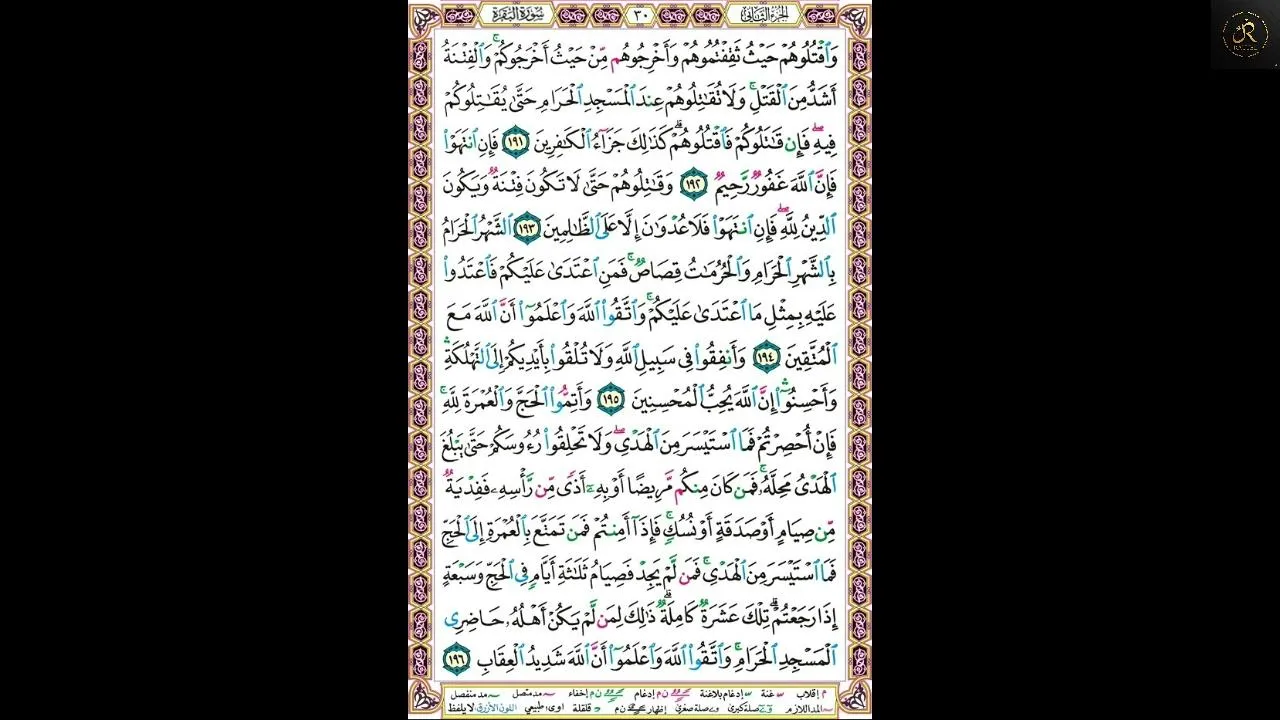 الجزء الثاني ٣٠ سورة البقرة
وَٱقۡتُلُوهُمۡ حَيۡثُ ثَقِفۡتُمُوهُمۡ وَأَخۡرِجُوهُم مِّنۡ حَيۡثُ أَخۡرَجُوكُمۡۚ وَٱلۡفِتۡنَةُ
أَشَدُّ مِنَ ٱلۡقَتۡلِۚ وَلَا تُقَٰتِلُوهُمۡ عِندَ ٱلۡمَسۡجِدِ ٱلۡحَرَامِ حَتَّىٰ يُقَٰتِلُوكُمۡ
فِيهِۖ فَإِن قَٰتَلُوكُمۡ فَٱقۡتُلُوهُمۡۗ كَذَٰلِكَ جَزَآءُ ٱلۡكَٰفِرِينَ ١٩١ فَإِنِ ٱنتَهَوۡاْ
فَإِنَّ ٱللَّهَ غَفُورٞ رَّحِيمٞ ١٩٢ وَقَٰتِلُوهُمۡ حَتَّىٰ لَا تَكُونَ فِتۡنَةٞ وَيَكُونَ
ٱلدِّينُ لِلَّهِۖ فَإِنِ ٱنتَهَوۡاْ فَلَا عُدۡوَٰنَ إِلَّا عَلَى ٱلظَّٰلِمِينَ ١٩٣ ٱلشَّهۡرُ ٱلۡحَرَامُ
بِٱلشَّهۡرِ ٱلۡحَرَامِ وَٱلۡحُرُمَٰتُ قِصَاصٞۚ فَمَنِ ٱعۡتَدَىٰ عَلَيۡكُمۡ فَٱعۡتَدُواْ
عَلَيۡهِ بِمِثۡلِ مَا ٱعۡتَدَىٰ عَلَيۡكُمۡۚ وَٱتَّقُواْ ٱللَّهَ وَٱعۡلَمُوٓاْ أَنَّ ٱللَّهَ مَعَ
ٱلۡمُتَّقِينَ ١٩٤ وَأَنفِقُواْ فِي سَبِيلِ ٱللَّهِ وَلَا تُلۡقُواْ بِأَيۡدِيكُمۡ إِلَى ٱلتَّهۡلُكَةِۛ
وَأَحۡسِنُوٓاْۛ إِنَّ ٱللَّهَ يُحِبُّ ٱلۡمُحۡسِنِينَ ١٩٥ وَأَتِمُّواْ ٱلۡحَجَّ وَٱلۡعُمۡرَةَ لِلَّهِۚ
فَإِنۡ أُحۡصِرۡتُمۡ فَمَا ٱسۡتَيۡسَرَ مِنَ ٱلۡهَدۡيِۖ وَلَا تَحۡلِقُواْ رُءُوسَكُمۡ حَتَّىٰ يَبۡلُغَ
ٱلۡهَدۡيُ مَحِلَّهُۥۚ فَمَن كَانَ مِنكُم مَّرِيضًا أَوۡ بِهِۦٓ أَذٗى مِّن رَّأۡسِهِۦ فَفِدۡيَةٞ
مِّن صِيَامٍ أَوۡ صَدَقَةٍ أَوۡ نُسُكٖۚ فَإِذَآ أَمِنتُمۡ فَمَن تَمَتَّعَ بِٱلۡعُمۡرَةِ إِلَى ٱلۡحَجِّ
فَمَا ٱسۡتَيۡسَرَ مِنَ ٱلۡهَدۡيِۚ فَمَن لَّمۡ يَجِدۡ فَصِيَامُ ثَلَٰثَةِ أَيَّامٖ فِي ٱلۡحَجِّ وَسَبۡعَةٍ
إِذَا رَجَعۡتُمۡۗ تِلۡكَ عَشَرَةٞ كَامِلَةٞۗ ذَٰلِكَ لِمَن لَّمۡ يَكُنۡ أَهۡلُهُۥ حَاضِرِي
ٱلۡمَسۡجِدِ ٱلۡحَرَامِۚ وَٱتَّقُواْ ٱللَّهَ وَٱعۡلَمُوٓاْ أَنَّ ٱللَّهَ شَدِيدُ ٱلۡعِقَابِ ١٩٦
م إقلاب غنة إدغام بلاغنة ن م إدغام ن م إخفاء مد متصل مد منفصل
المد اللازم صلة كبرى صلة صغرى إظهار ن م قلقلة اوى طبيعي اللون الأزرق لا يلفظ